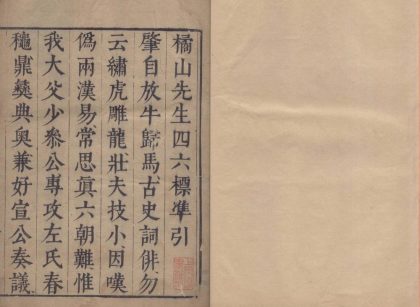 橘山先生四六標準引
肇自放牛歸馬古史詞俳勿
云繡虎雕龍壯夫技小因嘆
僞兩漢易常思眞六朝難惟
我大父少參公專攻左氏春
穐鼎彝典奥兼好宣公奏議